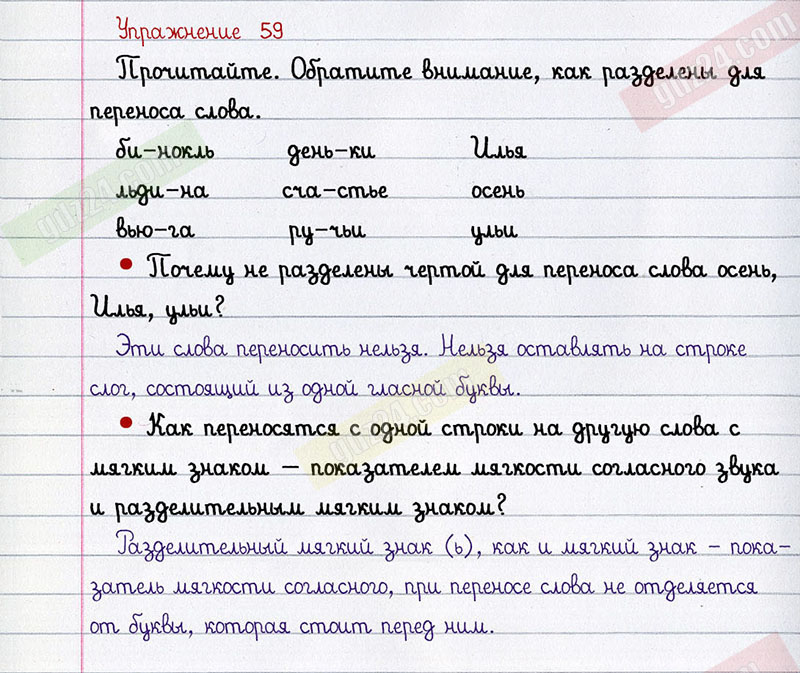 Упражнение 59
Прочитайте. Обратите внимание, как разделены для
переноса слова.
би-нокль день-ки Илья
льди-на сча-стье осень
вью-га ру-чьи ульи
• Почему не разделены чертой для переноса слова осень,
Илья, ульи?
Эти слова переносить нельзя. Нельзя оставлять на строке
слог, состоящий из одной гласной буквы.
• Как переносятся с одной строки на другую слова с
мягким знаком – показателем мягкости согласного звука
и разделительным мягким знаком?
Разделительный мягкий знак (ь), как и мягкий знак – пока-
затель мягкости согласного, при переносе слова не отделяется
от буквы, которая стоит перед ним.
gdz24.com
gdz24.com
gdz24.com